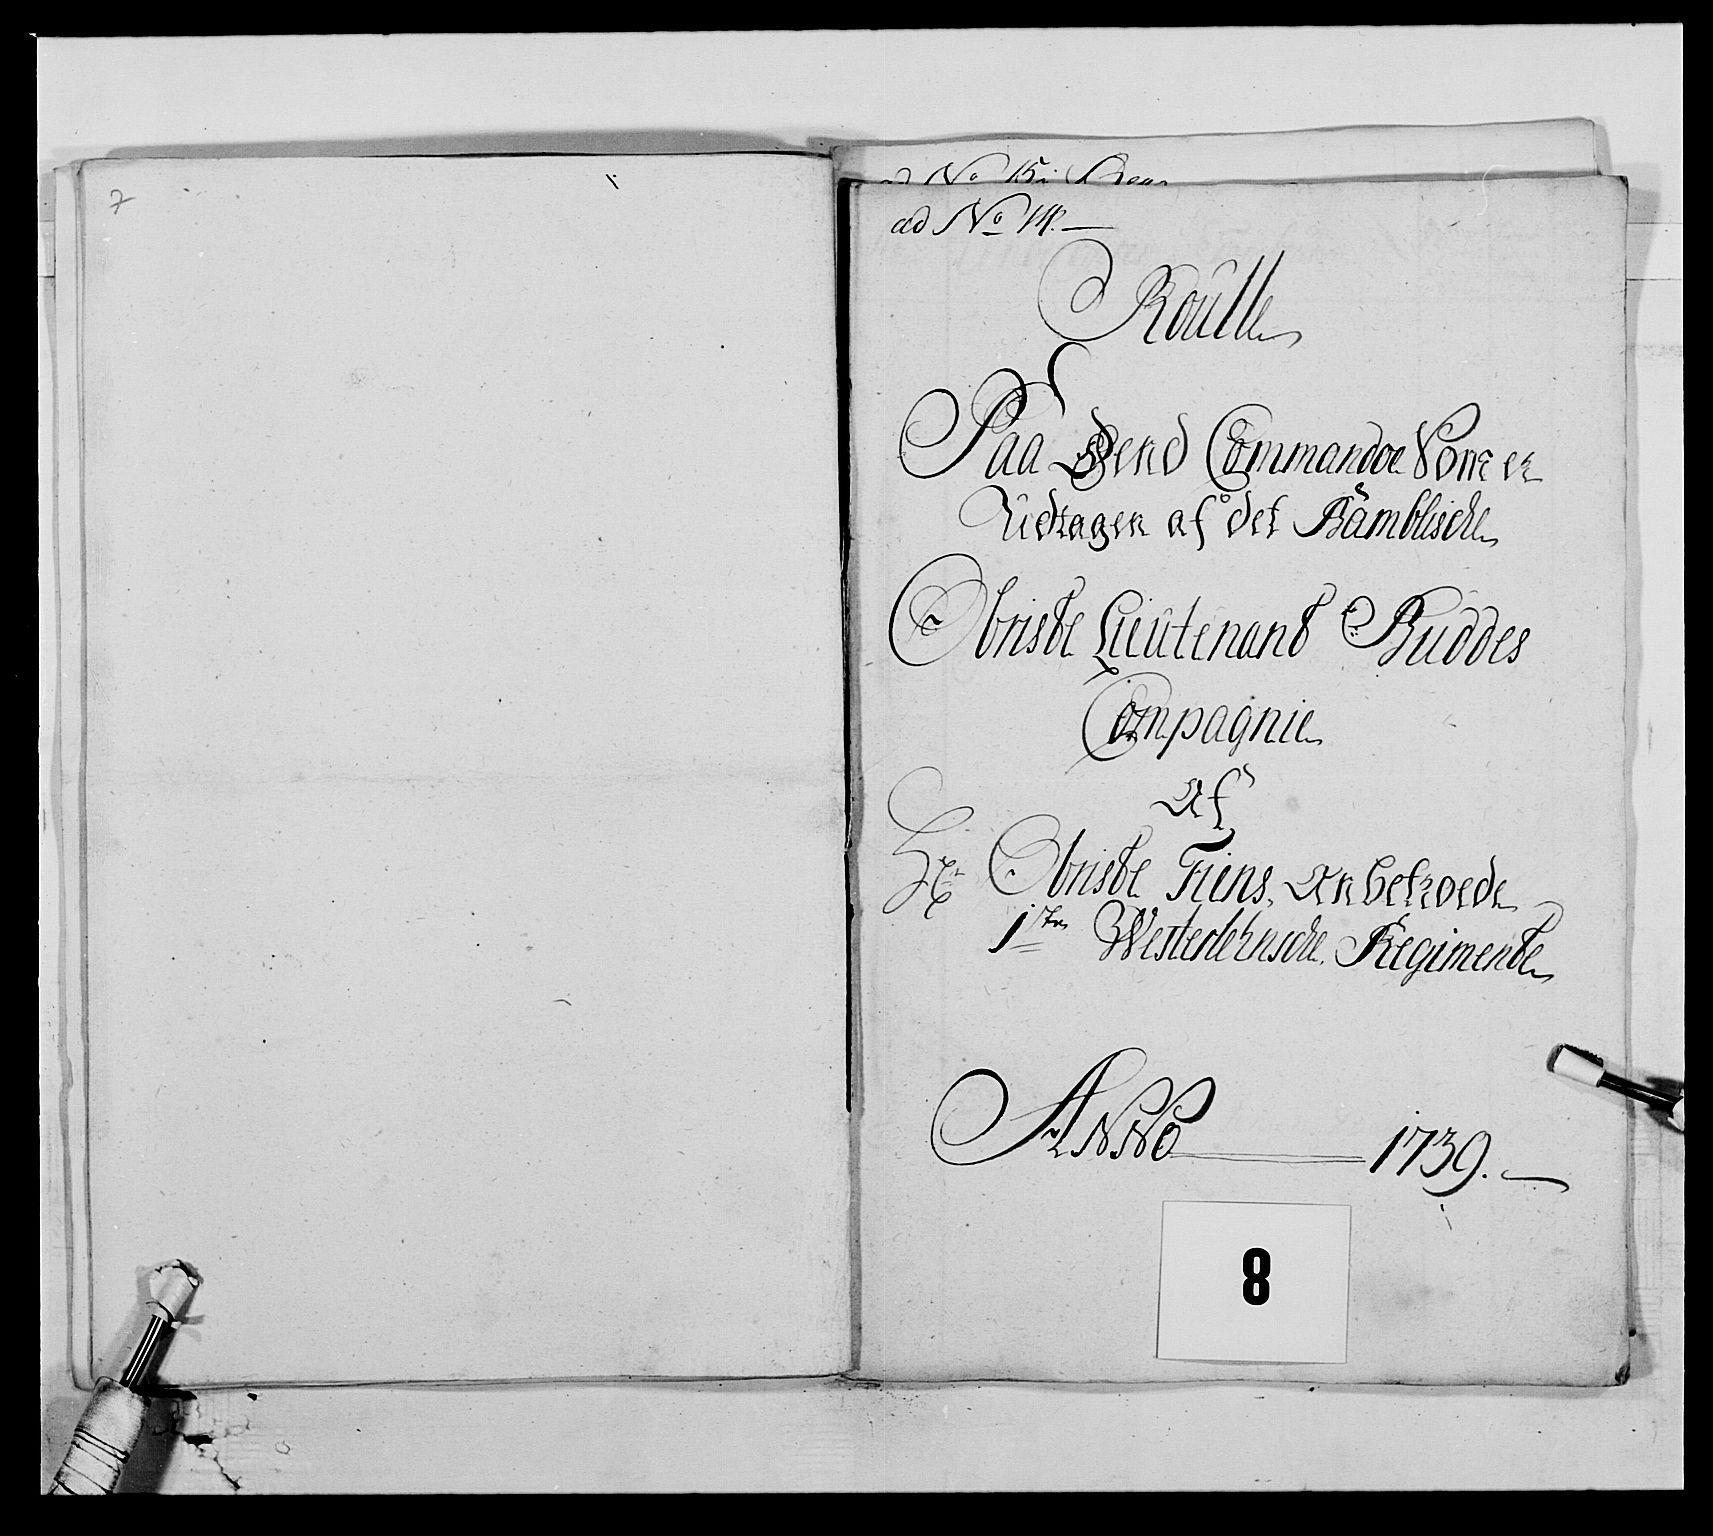 7
ad No 15:
ad No 14.
Roulle
Paa Dend Commandoe Som er
Udtagen af det Bamblische
Obriste Lieutenant Buddes
Compagnie
Af
Hr Obriste Fiens, Anbetroede
1ste Westerlehnsche Regimente
ANNO 1739.
8